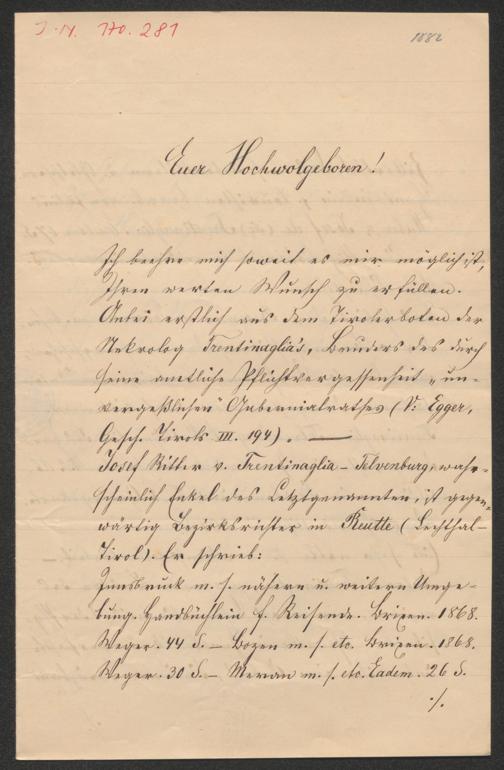 J. N. No. 281
1882
Euer Hochwolgeboren!
Ich beehre mich soweit es mir möglich ist,
Ihren werten Wunsch zu erfüllen.
Anbei erstlich aus dem Tirolerboten der
Nekrolog Trentinaglia's, Bruders des durch
seine amtliche Pflichtvergessenheit „un-
vergeßlichen" Gubernialrathes (V: Egger,
Gesch. Tirols III. 194). —
Josef Ritter v. Trentinaglia-Telvenburg, wahr-
scheinlich Enkel des Letztgenannten, ist gegen-
wärtig Bezirksrichter in Reutte (Lechthal-
Tirol). Er schrieb:
Innsbruck m. s. nähern u. weitern Umge-
bung. Handbüchlein f. Reisende. Brixen. 1868.
Weger. 44 S. — Bozen m. s. etc. Brixen. 1868.
Weger. 30 S. — Meran m. s. etc. Eadem. 26 S.
./.